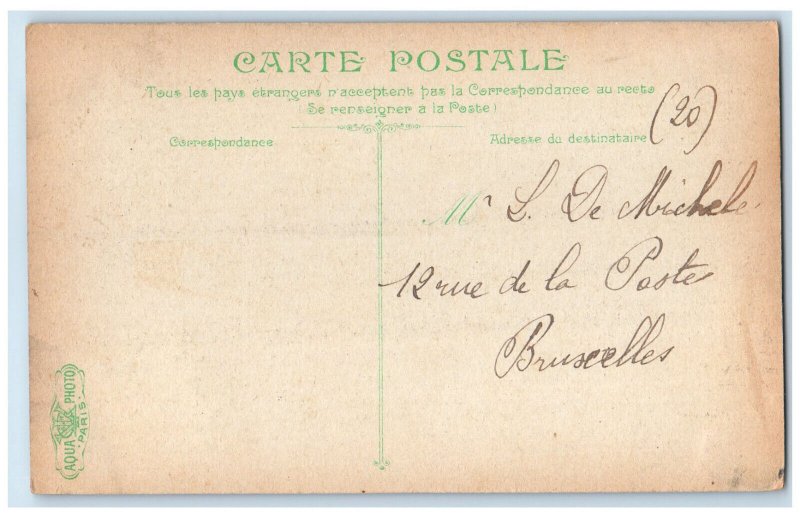 CARTE POSTALE
Tous les pays étrangers n'acceptent pas la Correspondance au recto
(Se renseigner a la Poste)
Correspondance
Adresse du destinataire
(20)
Mr L. De Michele
12 rue de la Poste
Bruxelles
AQUA PHOTO
PARIS